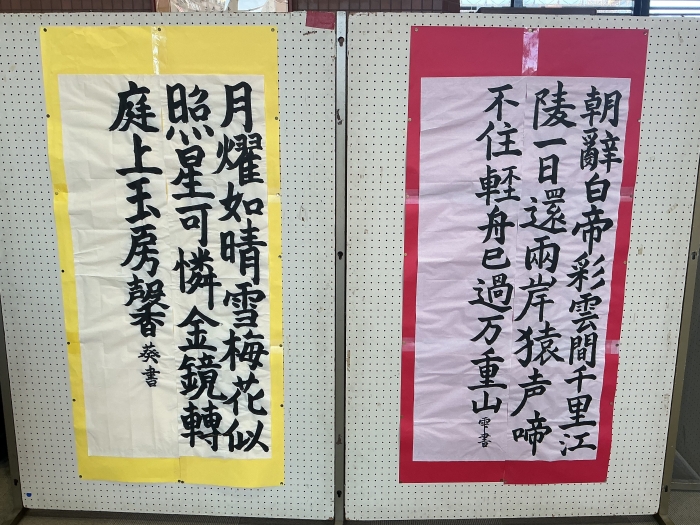 朝辭白帝彩雲間千里江
陵一日還兩岸猿声啼
不住軽舟已過万重山
雫書
月燿如晴雪梅花似
照星可憐金鏡轉
庭上玉房馨
葵書